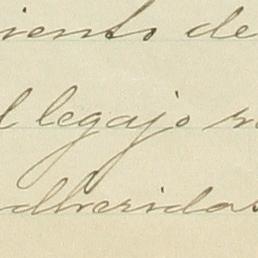 iento de
l legajo
adheridas